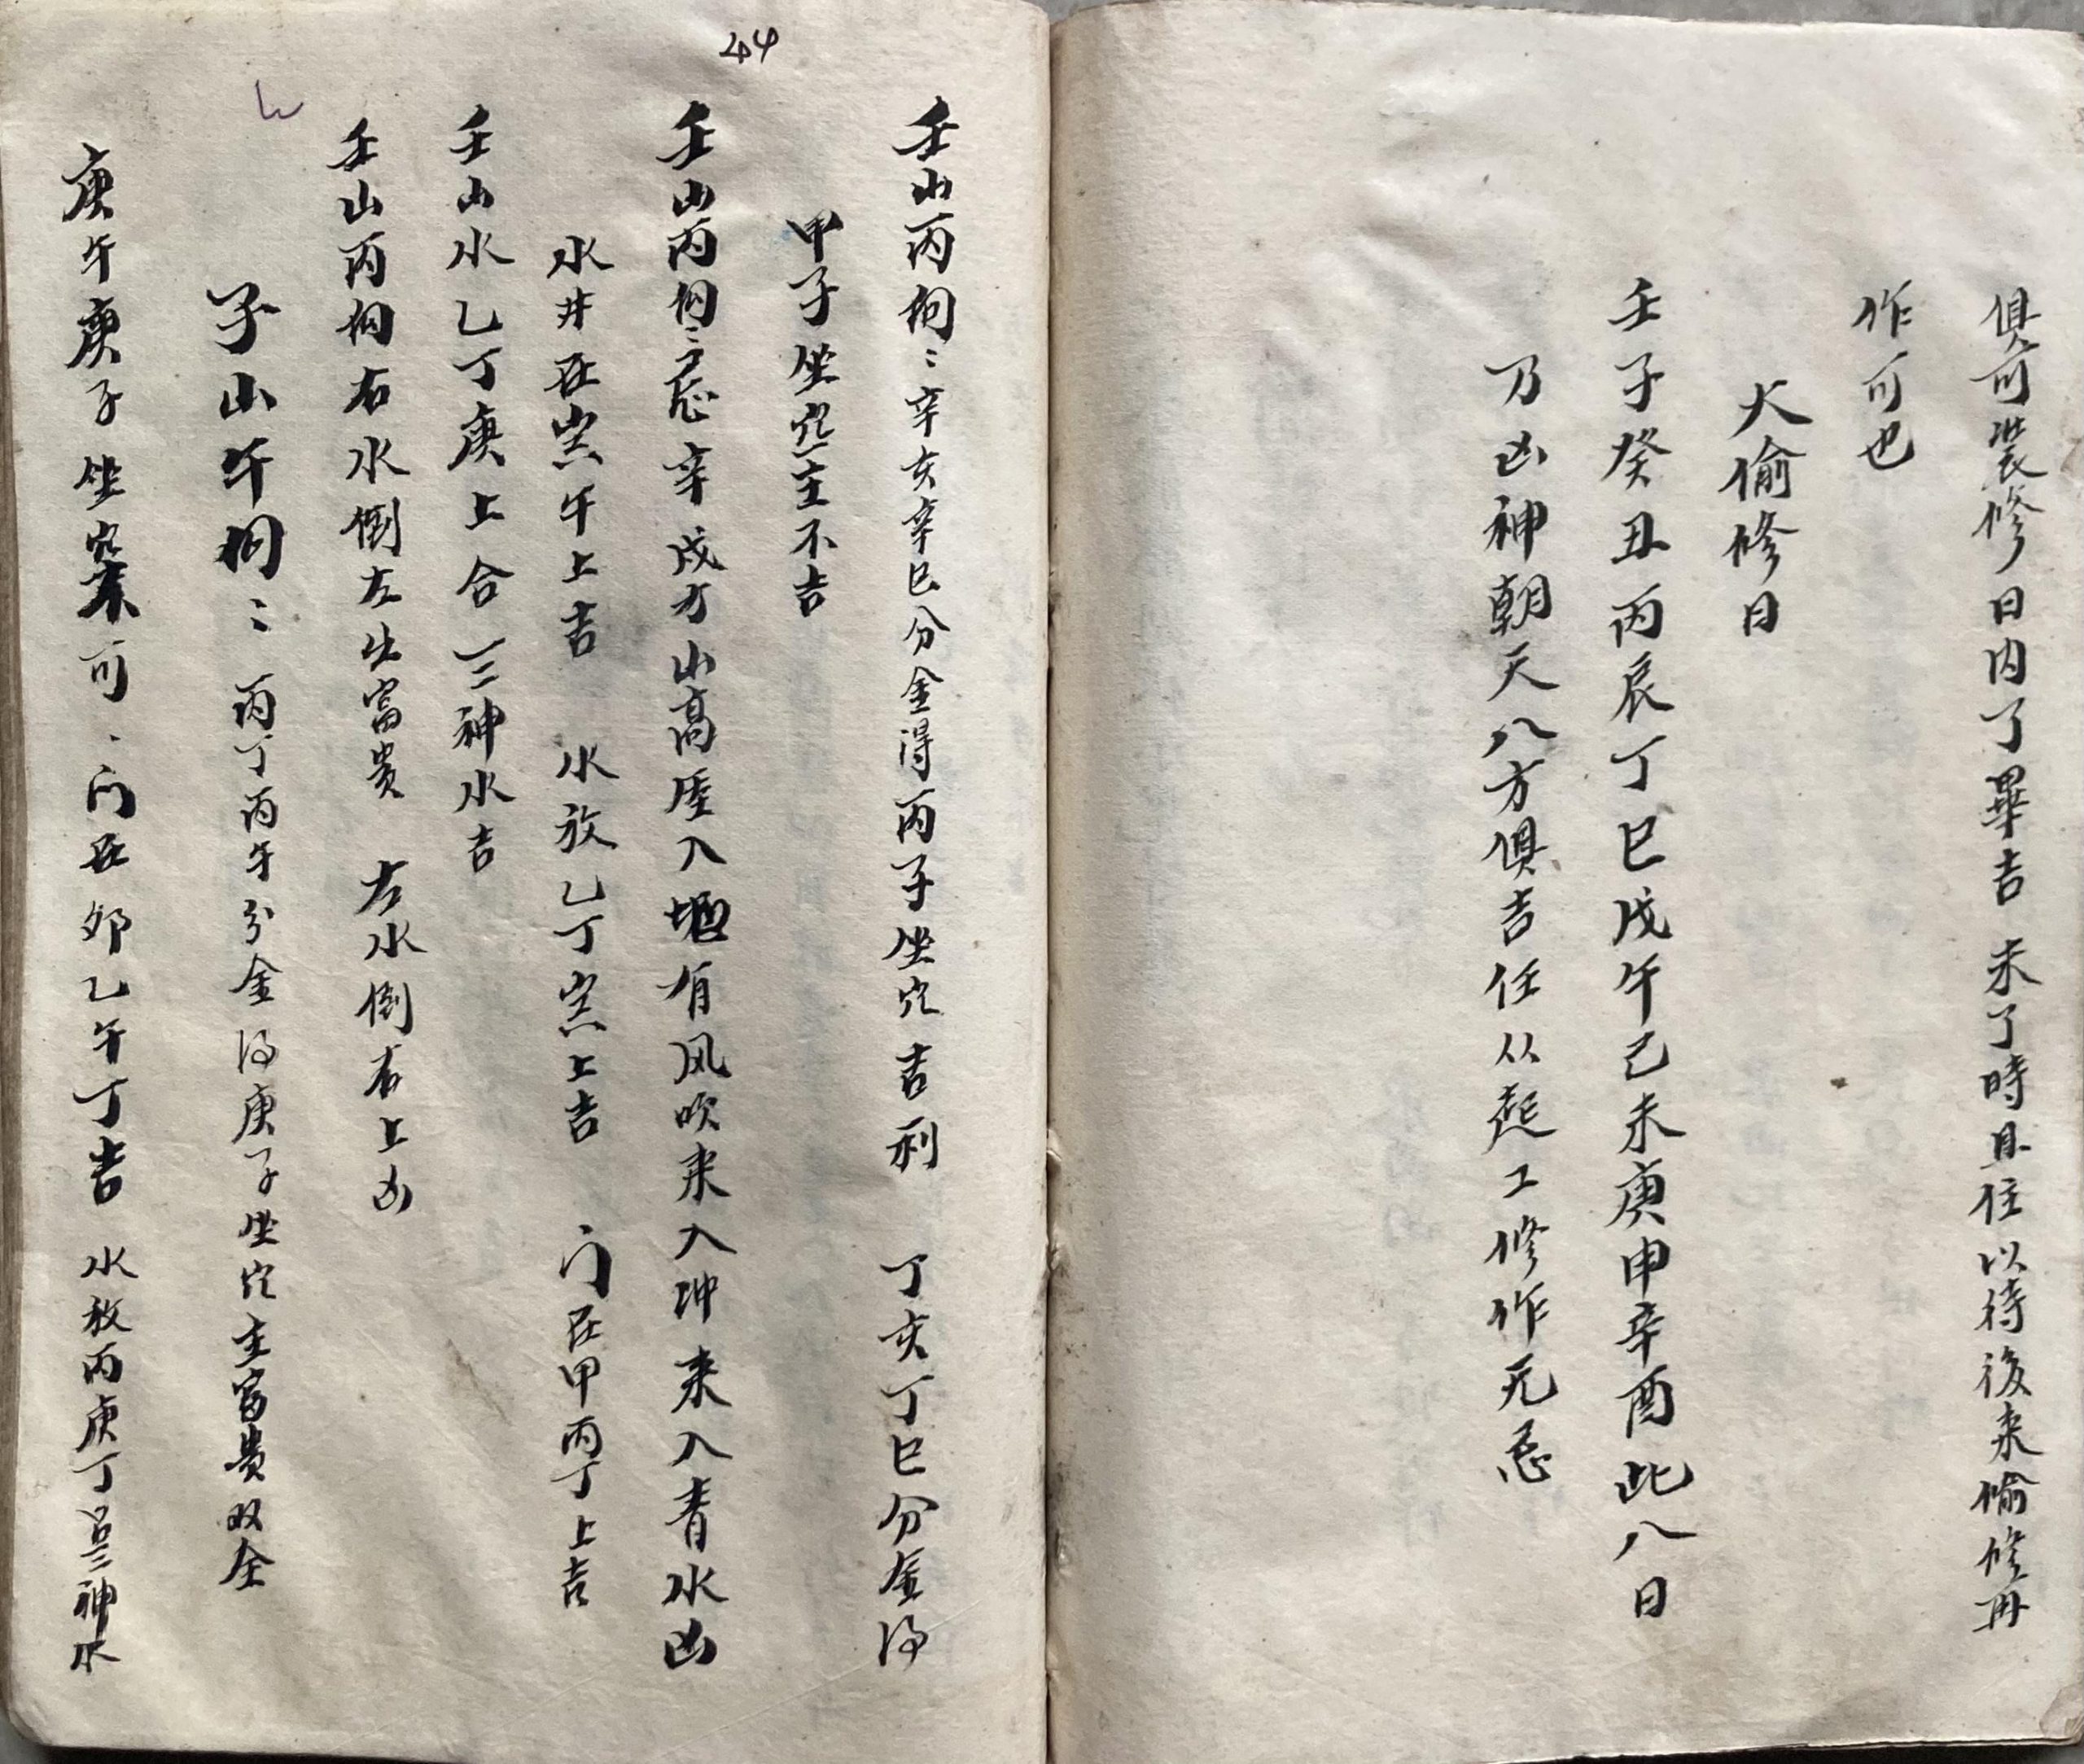 俱可装修日内了畢吉 未了時且住以待後来偷修再
作可也
大偷修日
壬子癸丑丙辰丁巳戊午己未庚申辛酉此八日
乃凶神朝天八方俱吉任从起工修作无忌
44
壬山丙向:辛亥辛巳分金得丙子坐穴吉利 丁亥丁巳分金得
甲子坐穴主不吉
壬山丙向:忌辛戌方山高压入 有风吹来入冲来入青水凶
水井在 午上吉 水放乙丁 上吉 门在甲丙丁上吉
壬山水乙丁庚上合三神水吉
壬山丙向右水倒左出富贵 左水倒右上凶
子山午向:丙丁丙午分金得庚子坐穴主富贵双全
庚午庚子坐穴 可、门在卯乙午丁吉 水放丙庚丁 三神水